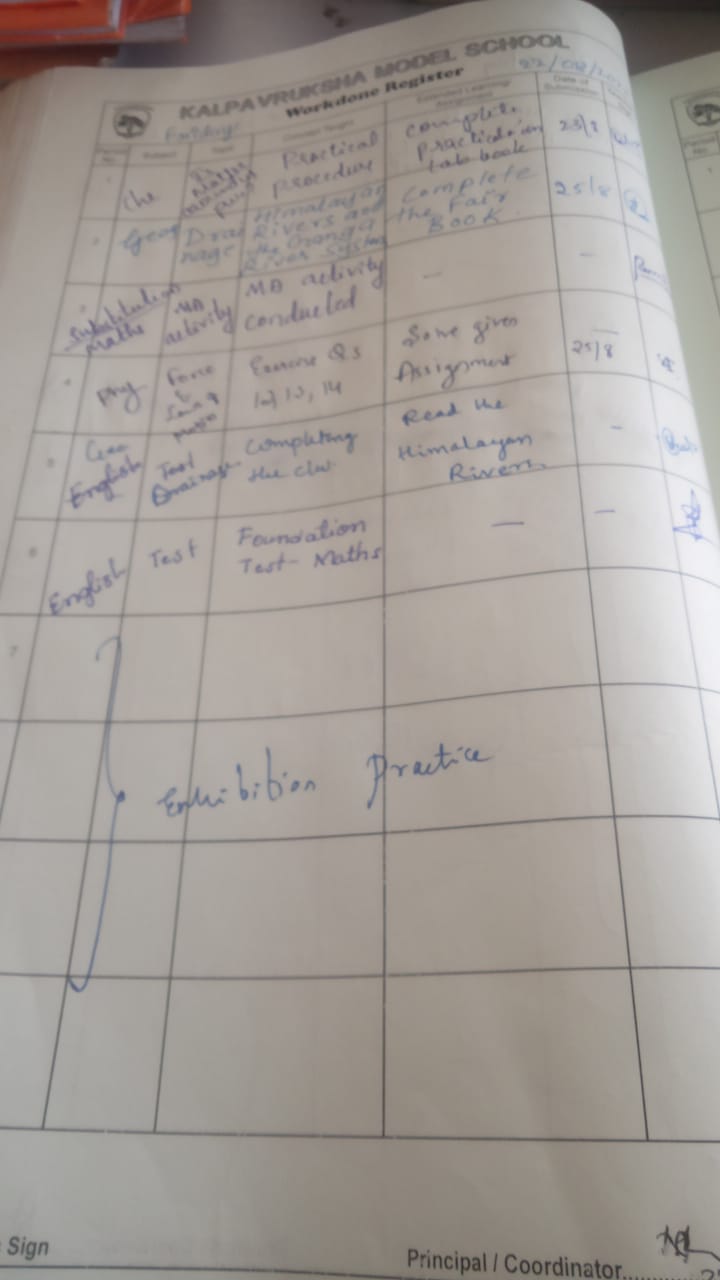 KALPAVRUKSHA MODEL SCHOOL
Workdone Register
22/08/20
Friday
Subject
Date of
Submission
Extended Learning/
Assignment
Che
Practical
procedure
complete
practicals in
Lab book
25/8
Geog
Drai
nage
Himalayan
Rivers and
the Ganga
River System
Complete
the Fair
Book
25/8
Substitution
Maths
MA
activity
MA activity
conducted
—
—
Phy
Force
&
Exercise Qs
12, 13, 14
Solve given
Assignment
25/8
Geo
English
Test
Drainage
Completing
the cw
Read the
Himalayan
Rivers
-
6
English
Test
Foundation
Test- Maths
—
—
7
Exhibition Practice
Sign
Principal / Coordinator